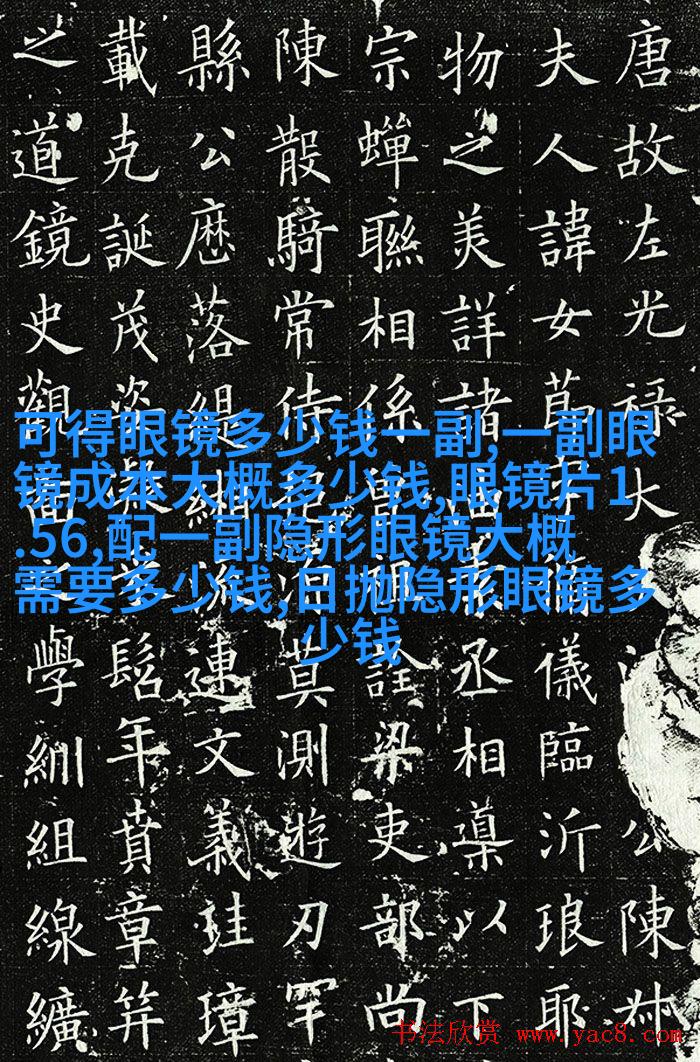 唐故左光祿大公陳
夫人諱女節儀臨沂琅耶
物之美詳諸丞相導以下
宗蟬聯相係曾祖詮梁吏部尚
陳散騎常侍莫測遊刃罕
縣公歷落緹緗連文義珪璋
載克誕茂姿髫年賁章笄
之道鏡史觀學紃組線纊
可得眼镜多少钱一副,一副眼
镜成本大概多少钱,眼镜片1
.56,配一副隐形眼镜大概
需要多少钱,日抛隐形眼镜多
少钱
书法欣赏 www.yac8.com